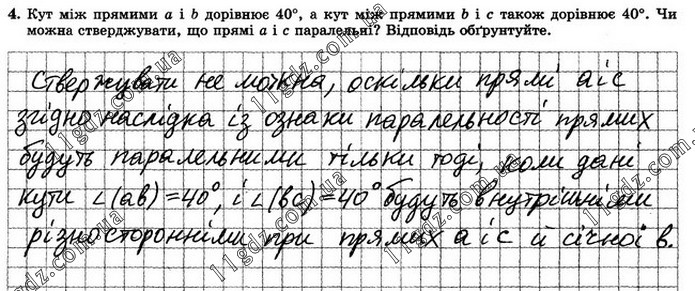 4. Кут між прямими a і b дорівнює 40°, а кут між прямими b і c також дорівнює 40°. Чи
можна стверджувати, що прямі a і c паралельні? Відповідь обґрунтуйте.
Стверджувати не можна, оскільки прямі a і c
згідно наслідка із ознаки паралельності прямих
будуть паралельними тільки тоді, коли дані
кути ∠(ab)=40°, і ∠(bc)=40° будуть внутрішніми
різносторонніми при прямих a і c й січної в.
11gdz.com.ua